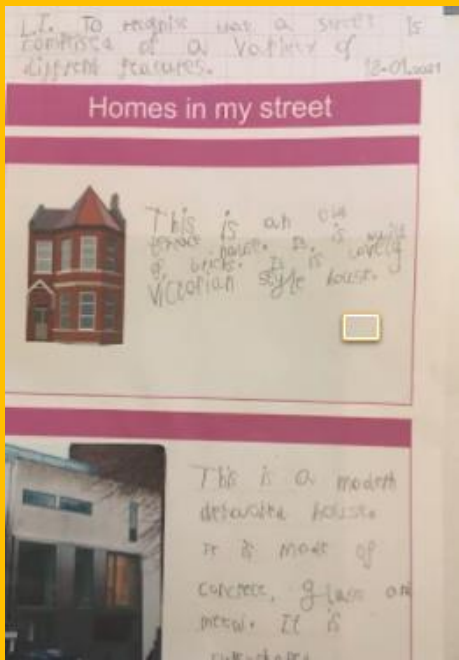 L.I. To recognise that a street is
comprised of a variety of
different features.
18.01.2021
Homes in my street
This is an old
terrace house. It is build
of bricks. It is lovely
Victorian style house.
This is a modern
detached house.
It is made of
concrete, glass and
metal. It is